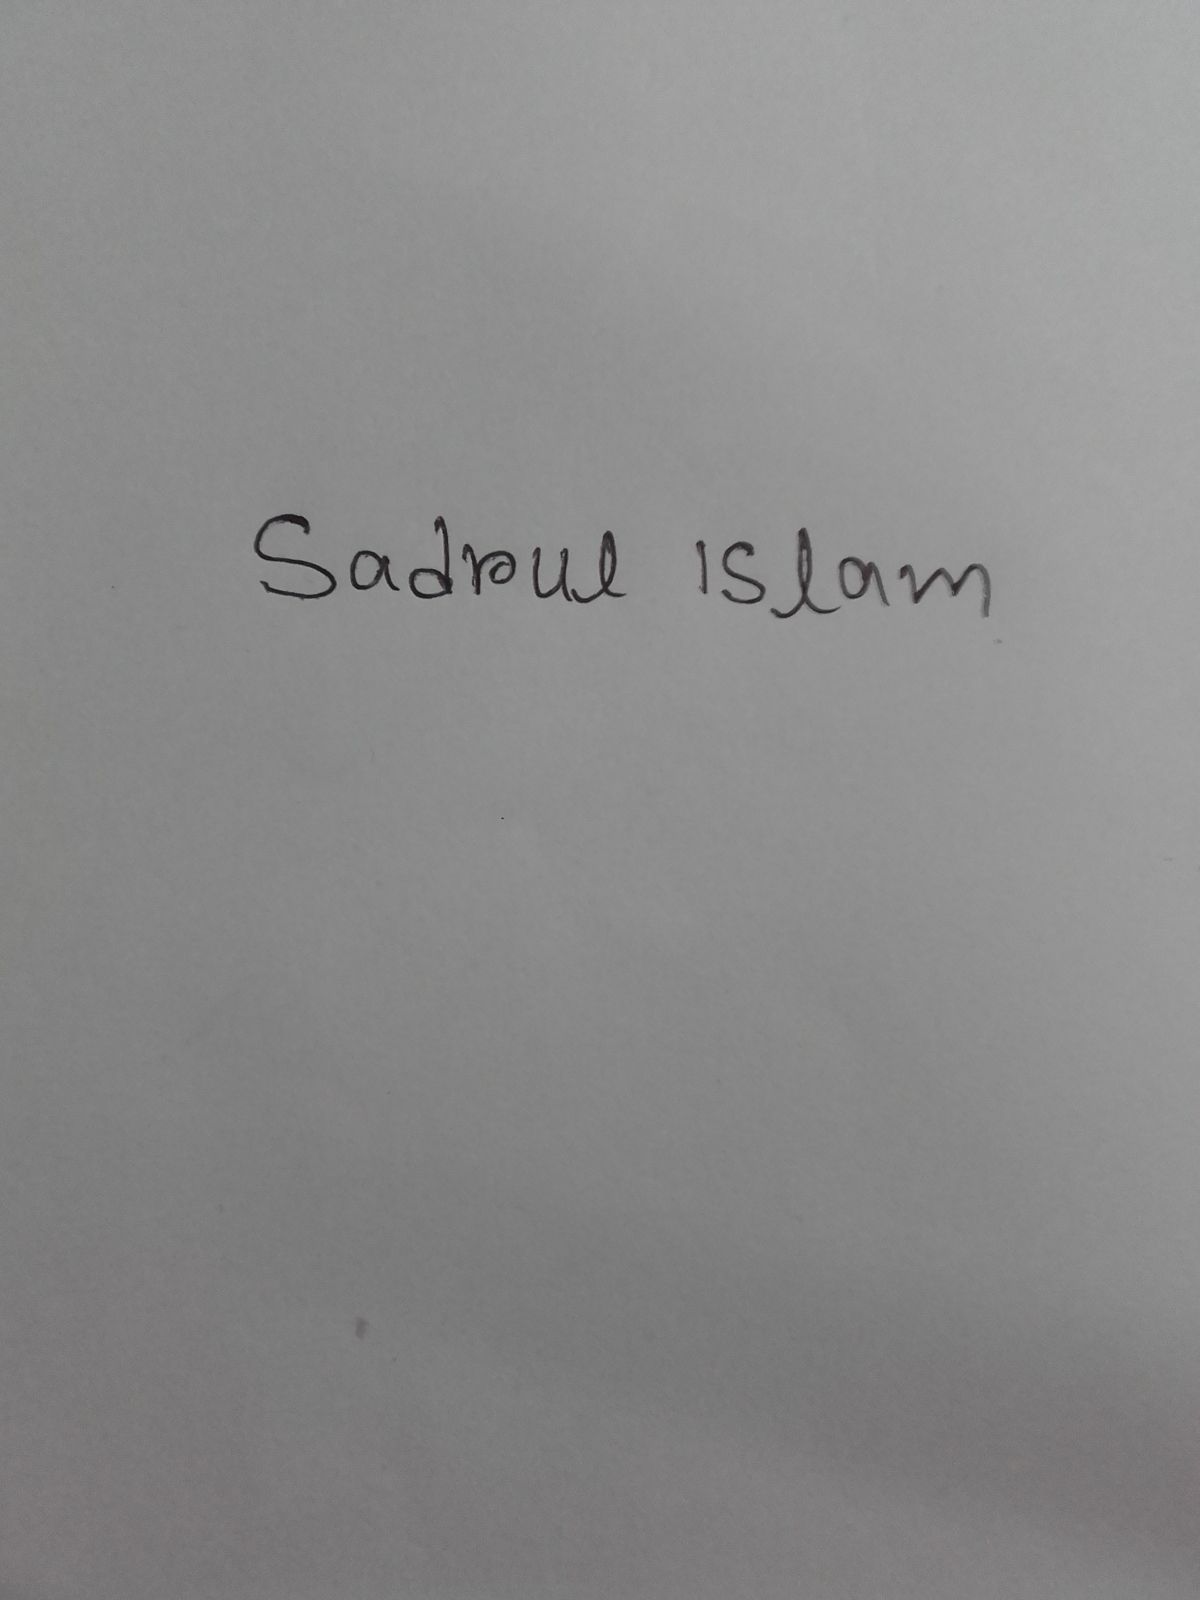 Sadroul islam